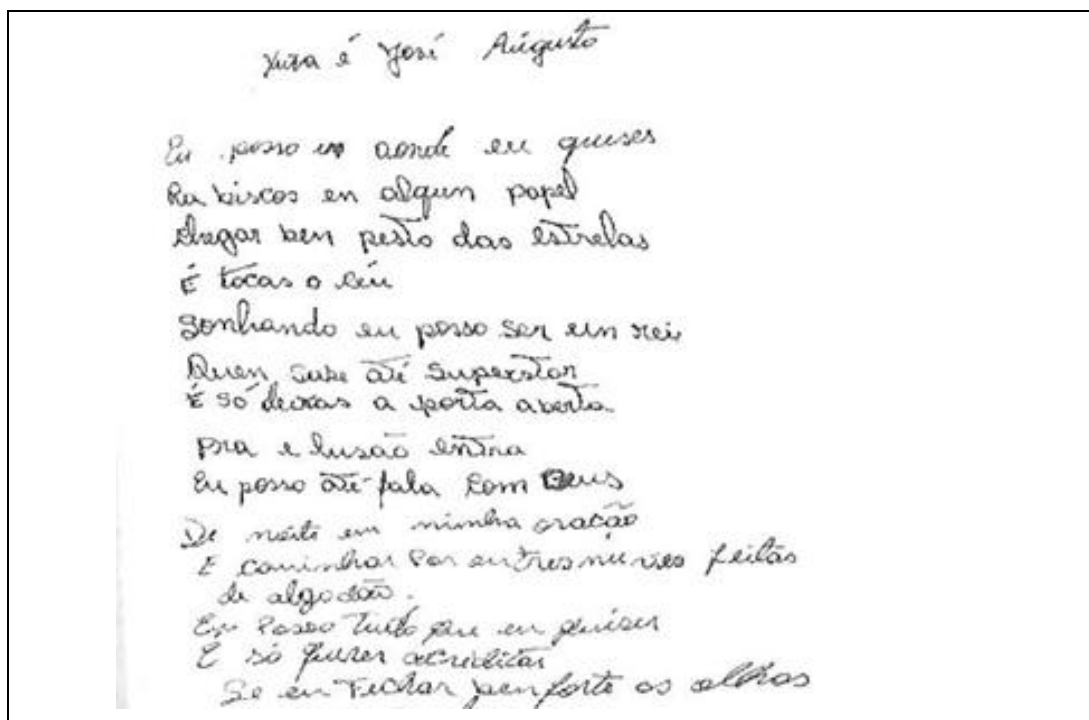 Xuxa é José Augusto
Eu posso ir aonde eu quises
Ra biscos en algun papel
Chegar ben pesto das estrelas
É tocas o céu
Sonhando eu posso ser um rei
Quen sabe até superstar
É só deixas a porta aberta
pra e lusão entra
Eu posso até fala com Deus
De noite em minha oração
E caminhar por entres nuvves feitas
de algodão.
Eu Posso tudo que eu quiser
E só querer acreditar
Se eu Fechar ben forte os olhos